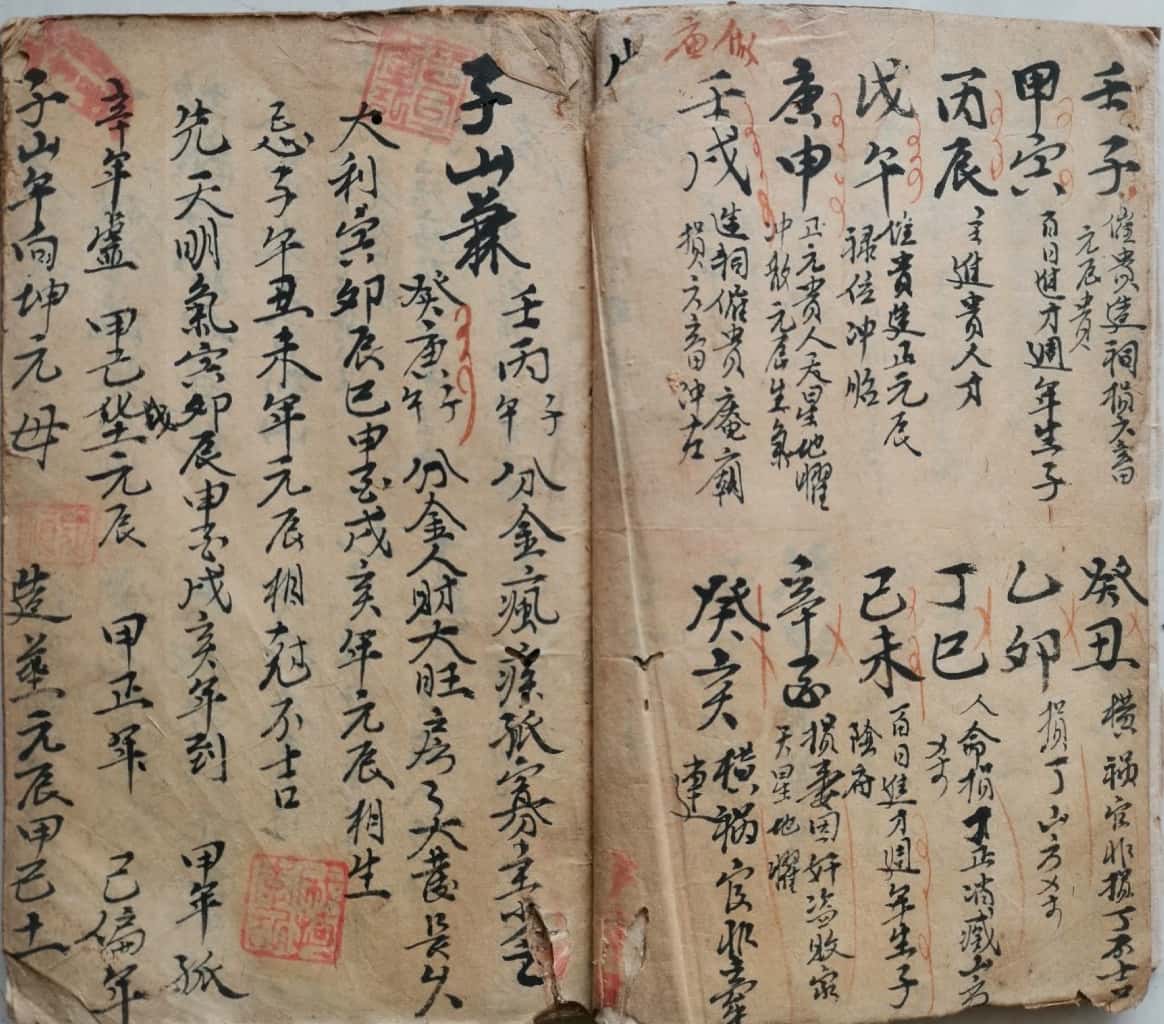 壬子 催貴造祠損六畜
元辰貴
甲寅 百日進才週年生子
丙辰 主進貴人才
戊午 催貴進正元辰
祿位冲
庚申 正元貴人天星地曜
冲散元辰生氣
壬戌 造祠催貴庵廟
損六畜冲
癸丑 横禍官非損丁不吉
乙卯 損丁山方
丁巳 人命損丁正消滅山方
己未 百日進才週年生子
陰府
辛酉 損妻因奸盗敗家
天星地曜
癸亥 横禍官非
連
山
子山兼
壬丙 午子 分金瘋疾孤寡
癸庚 午子 分金人財大旺房々大發長久
大利寅卯辰巳申酉戌亥年元辰相生
忌子午丑未年元辰相尅不吉
先天明氣寅卯辰申酉戌亥年到 甲年孤
辛年虛 甲己 元辰 甲正 己偏年
子山午向坤元母 造墓元辰甲己土